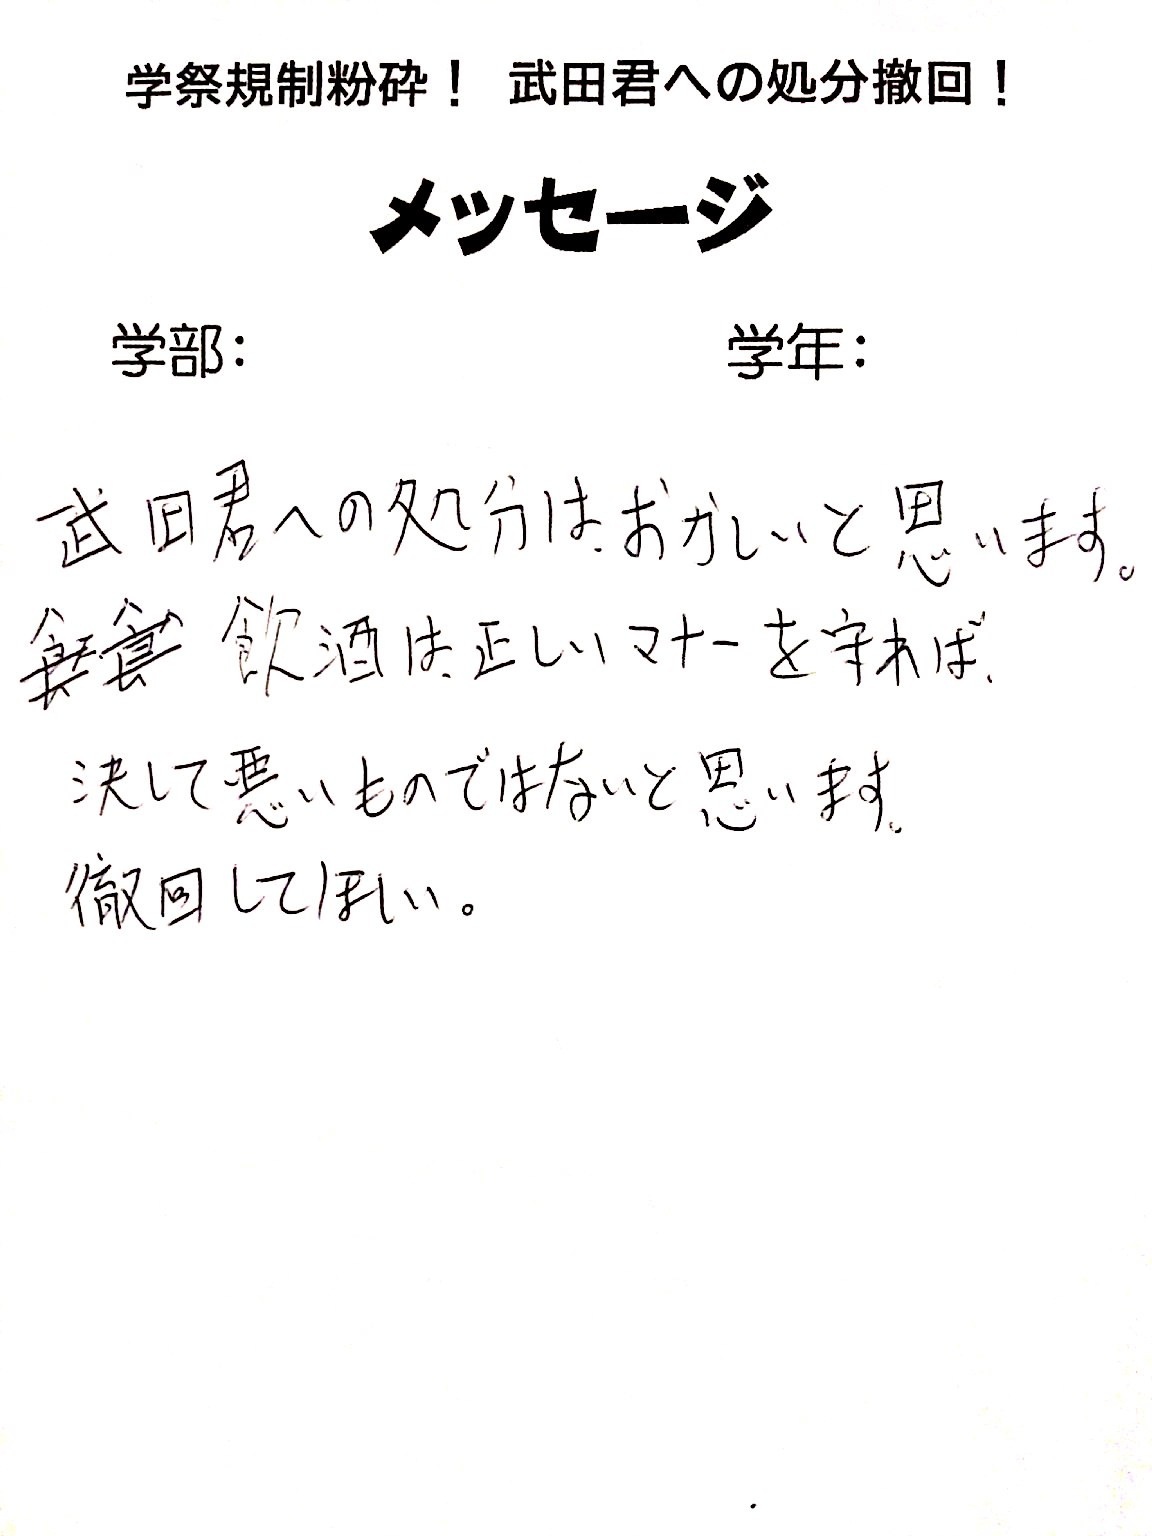 学祭規制粉砕！ 武田君への処分撤回！
メッセージ
学部： 学年：
武田君への処分は、おかしいと思います。
飲酒は、正しいマナーを守れば、
決して悪いものではないと思います。
撤回してほしい。